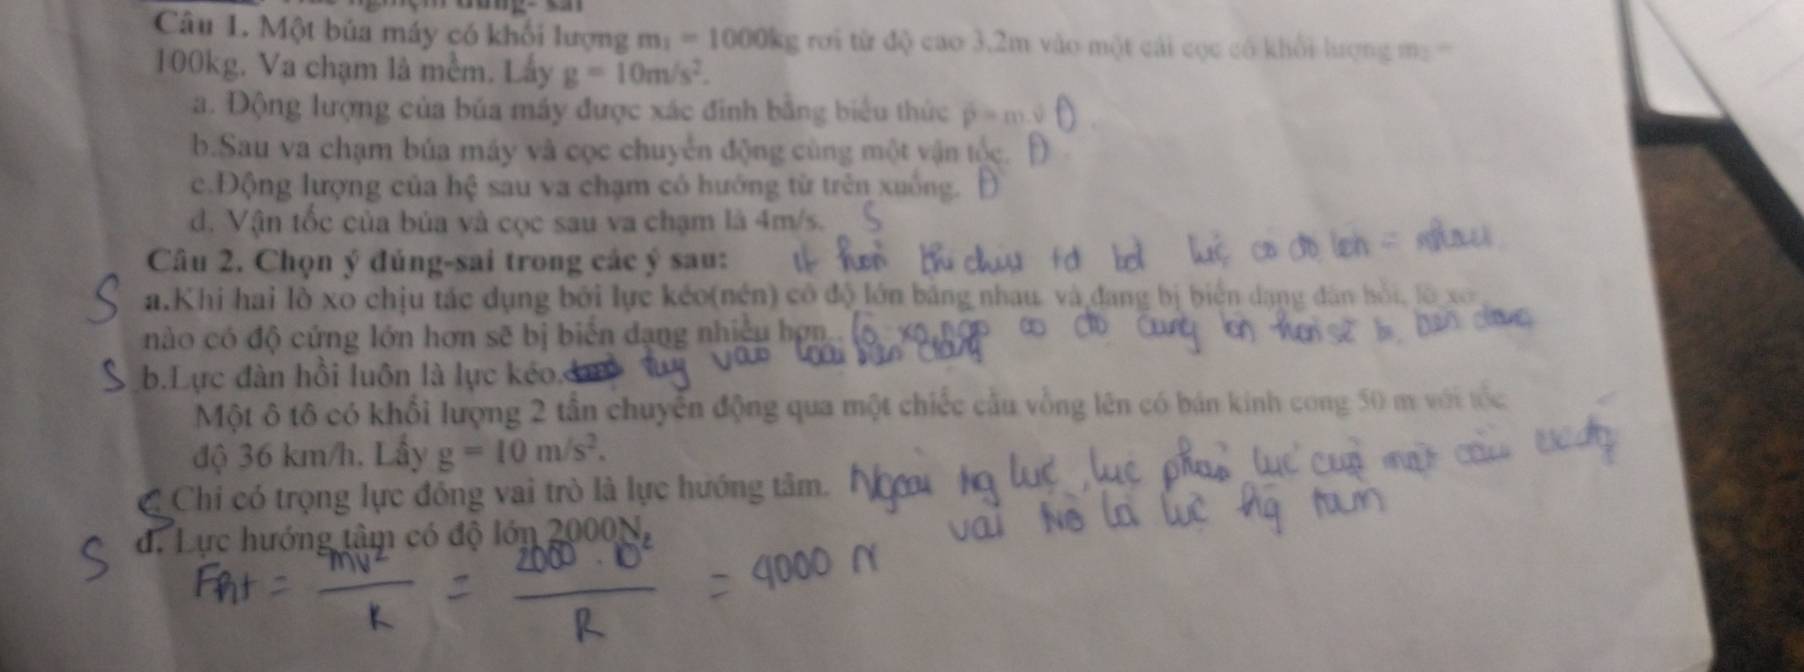 Câu 1. Một búa máy có khối lượng m₁ = 1000kg rơi từ độ cao 3,2m vào một cái cọc có khối lượng m₂ =
100kg. Va chạm là mềm. Lấy g = 10m/s².
a. Động lượng của búa máy được xác đinh bằng biểu thức p = m.v Đ
b.Sau va chạm búa máy và cọc chuyển động cùng một vận tốc. Đ
c.Động lượng của hệ sau va chạm có hướng từ trên xuống. Đ
d. Vận tốc của búa và cọc sau va chạm là 4m/s. S
Câu 2. Chọn ý đúng-sai trong các ý sau:
ít hơn khi chịu td bởi lực có độ lớn = nhau
S a.Khi hai lò xo chịu tác dụng bởi lực kéo(nén) có độ lớn bằng nhau và đang bị biến dạng đàn hồi, lò xo
nào có độ cứng lớn hơn sẽ bị biến dạng nhiều hơn. lò xo nào có độ cứng lớn hơn sẽ bị biến dạng
S b.Lực đàn hồi luôn là lực kéo. tùy vào loại biến dạng
Một ô tô có khối lượng 2 tấn chuyển động qua một chiếc cầu vồng lên có bán kính cong 50 m với tốc
độ 36 km/h. Lấy g = 10 m/s².
S Chỉ có trọng lực đóng vai trò là lực hướng tâm. Ngoài tg lực, lực phản lực của mặt cầu
vai trò là lực hg tâm
S d. Lực hướng tâm có độ lớn 2000N.
Fht = mv² / R = 2000 . 10² / R = 4000 N